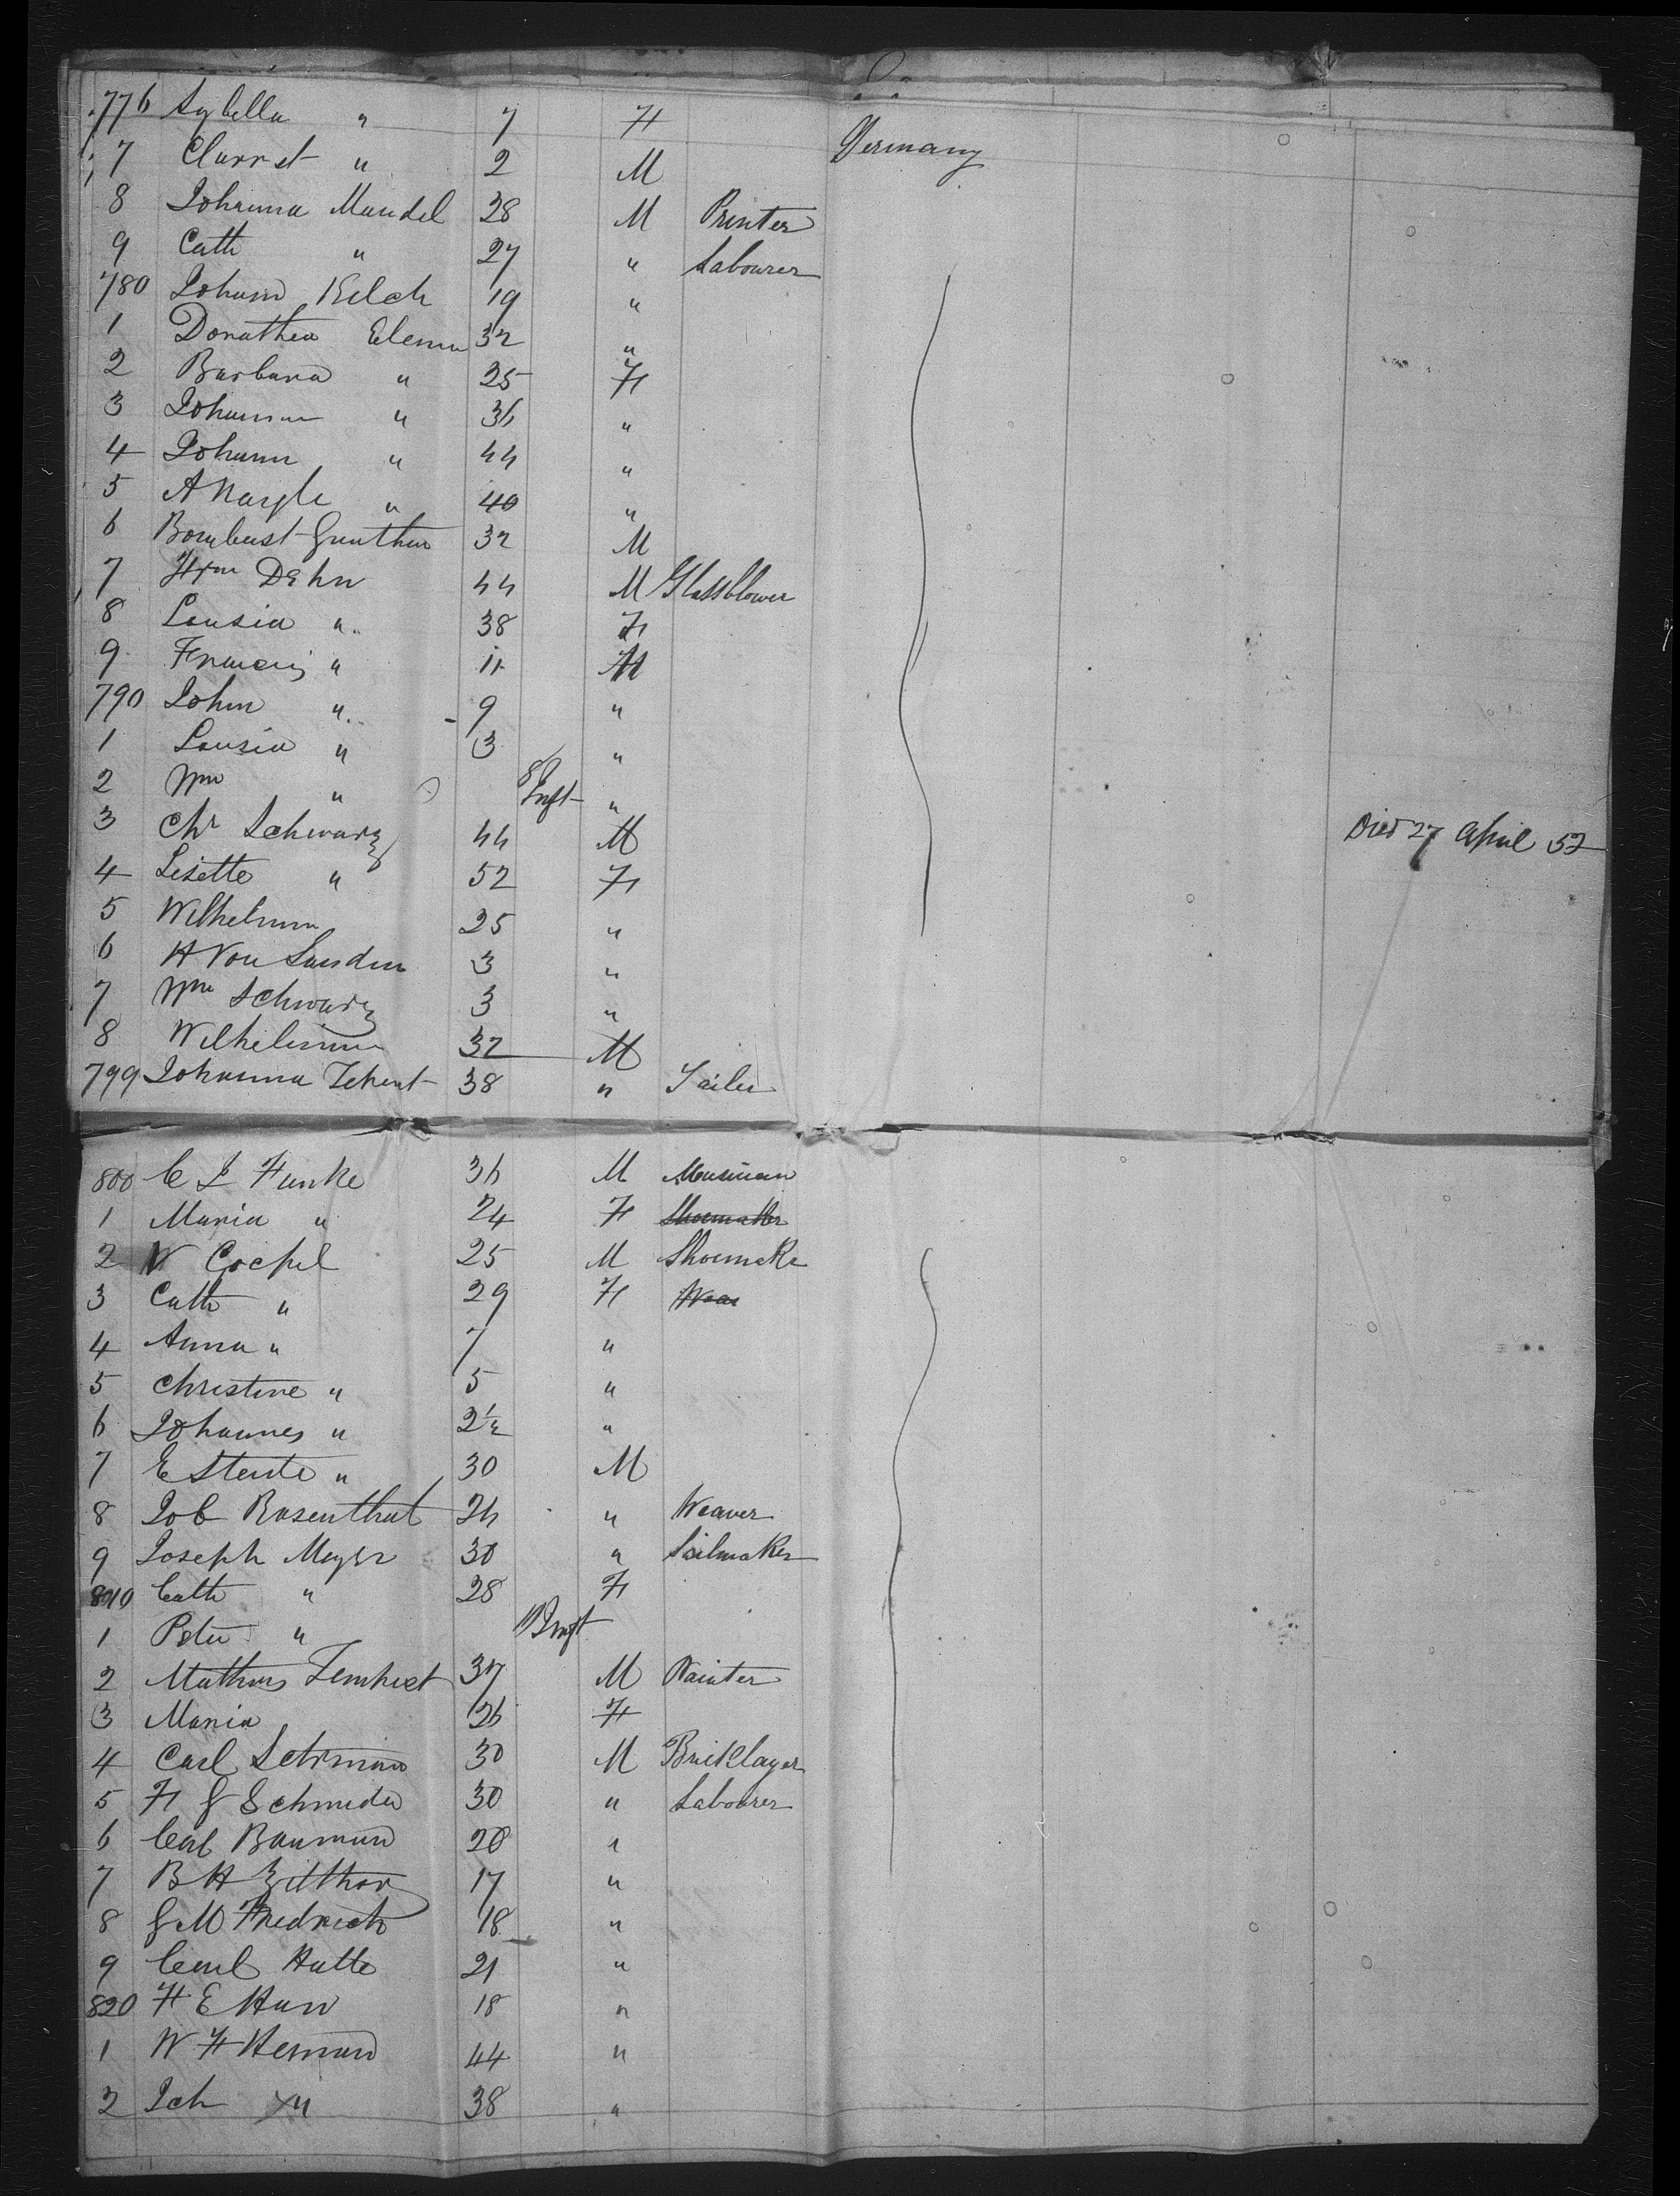 776 Sybella " 7 F Germany
7 " 2 M
8 Johanna Mandel 28 M Printer
9 Cath " 27 " Labourer
780 Johann 19 "
1 Dorathea 32 "
2 Barbara " 25 F
3 Johanna " 36 "
4 Johann " 44 "
5 " 40 "
6 Gunther 32 M
7 Dehn 44 M Glassblower
8 Lousia " 38 F
9 Francis " 11 M
790 John " 9 "
1 Lousia " 3 "
2 Wm " Inft "
3 Chr Schwarz 44 M Died 27 April 52
4 Lisette " 52 F
5 Wilhelmina 25 "
6 H Von Sanden 3 "
7 Wm Schwarz 3 "
8 Wilhelmina 32 M
799 Johanna 38 "
800 C J Funke 36 M Musician
1 Maria " 24 F Shoemaker
2 W Goepel 25 M Shoemake
3 Cath " 29 F Wea
4 Anna " 7 "
5 Christine " 5 "
6 Johannes " 2½ "
7 E Stente " 30 M
8 Job Rosenthal 24 " Weaver
9 Joseph Meyer 30 " Sailmaker
810 Cath " 28 F
1 Peter " Inft
2 Mathias 37 M Painter
3 Maria 26 F
4 Carl 30 M Bricklayer
5 F G Schmeder 30 " Labourer
6 Carl Bauman 20 "
7 B H Zilthor 17 "
8 G M Fredrich 18 "
9 Carl Hutte 21 "
820 F E Haw 18 "
1 W F Herman 44 "
2 Joh " 38 "